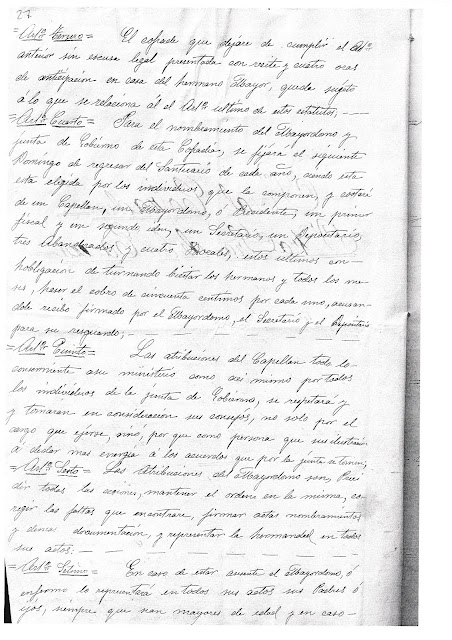 27
=Artº Tercero= El cofrade que dejare de cumplir el Artº
anterior sin escusa legal presentada con veite y cuatro oras
de anticipacion en casa del hermano Mayor, queda sujeto
a lo que se relaciona al el Artº ultimo de estos estatutos; - -
=Artº Cuarto= Para el nombramiento del Mayordomo y
junta de Gobierno de esta Cofradia, se fijara el siguiente
Domingo de regresar del Santuario de cada año, siendo esta
esta elegida por los individuos que la componen, y constará
de un Capellan, un Mayordomo, o Presidente, un primer
fiscal y un segundo iden, un Secretario, un Depositario,
tres Abanderados y cuatro Vocales, estos ultimos con
hobligacion de turnando bisitar los hermanos y todos los me-
ses, hacer el cobro de cincuenta centimos por cada uno, acusan-
dole recibo firmado por el Mayordomo, el Secretario y el Depositario
para su resguardo; - - - - -
=Artº Quinto= Las atribuciones del Capellan todo lo
concerniente asu ministerio como asi mismo por todos
los individuos de la junta de Gobierno, se respetara y
y tomaran en consideracion sus consejos, no solo por el
cargo que ejerse, sino, por que como persona que su
a dectar mas energia á los acuerdos que por la junta se tomen;
=Artº Sesto= Las Atribuciones del Mayordomo son, Presi-
dir todas las seciones, mantener el ordene en la misma, co-
regir las faltas que encontrare, firmar actas nombramientos
y demas documentacion, y representar la hermandad en todos
sus actos: - - - -
=Artº Setimo= En caso de estar ausente el Mayordomo, ó
enfermo lo representara en todos sus actos sus Padres ó
ijos, siempre que sean mayores de edad y en caso-